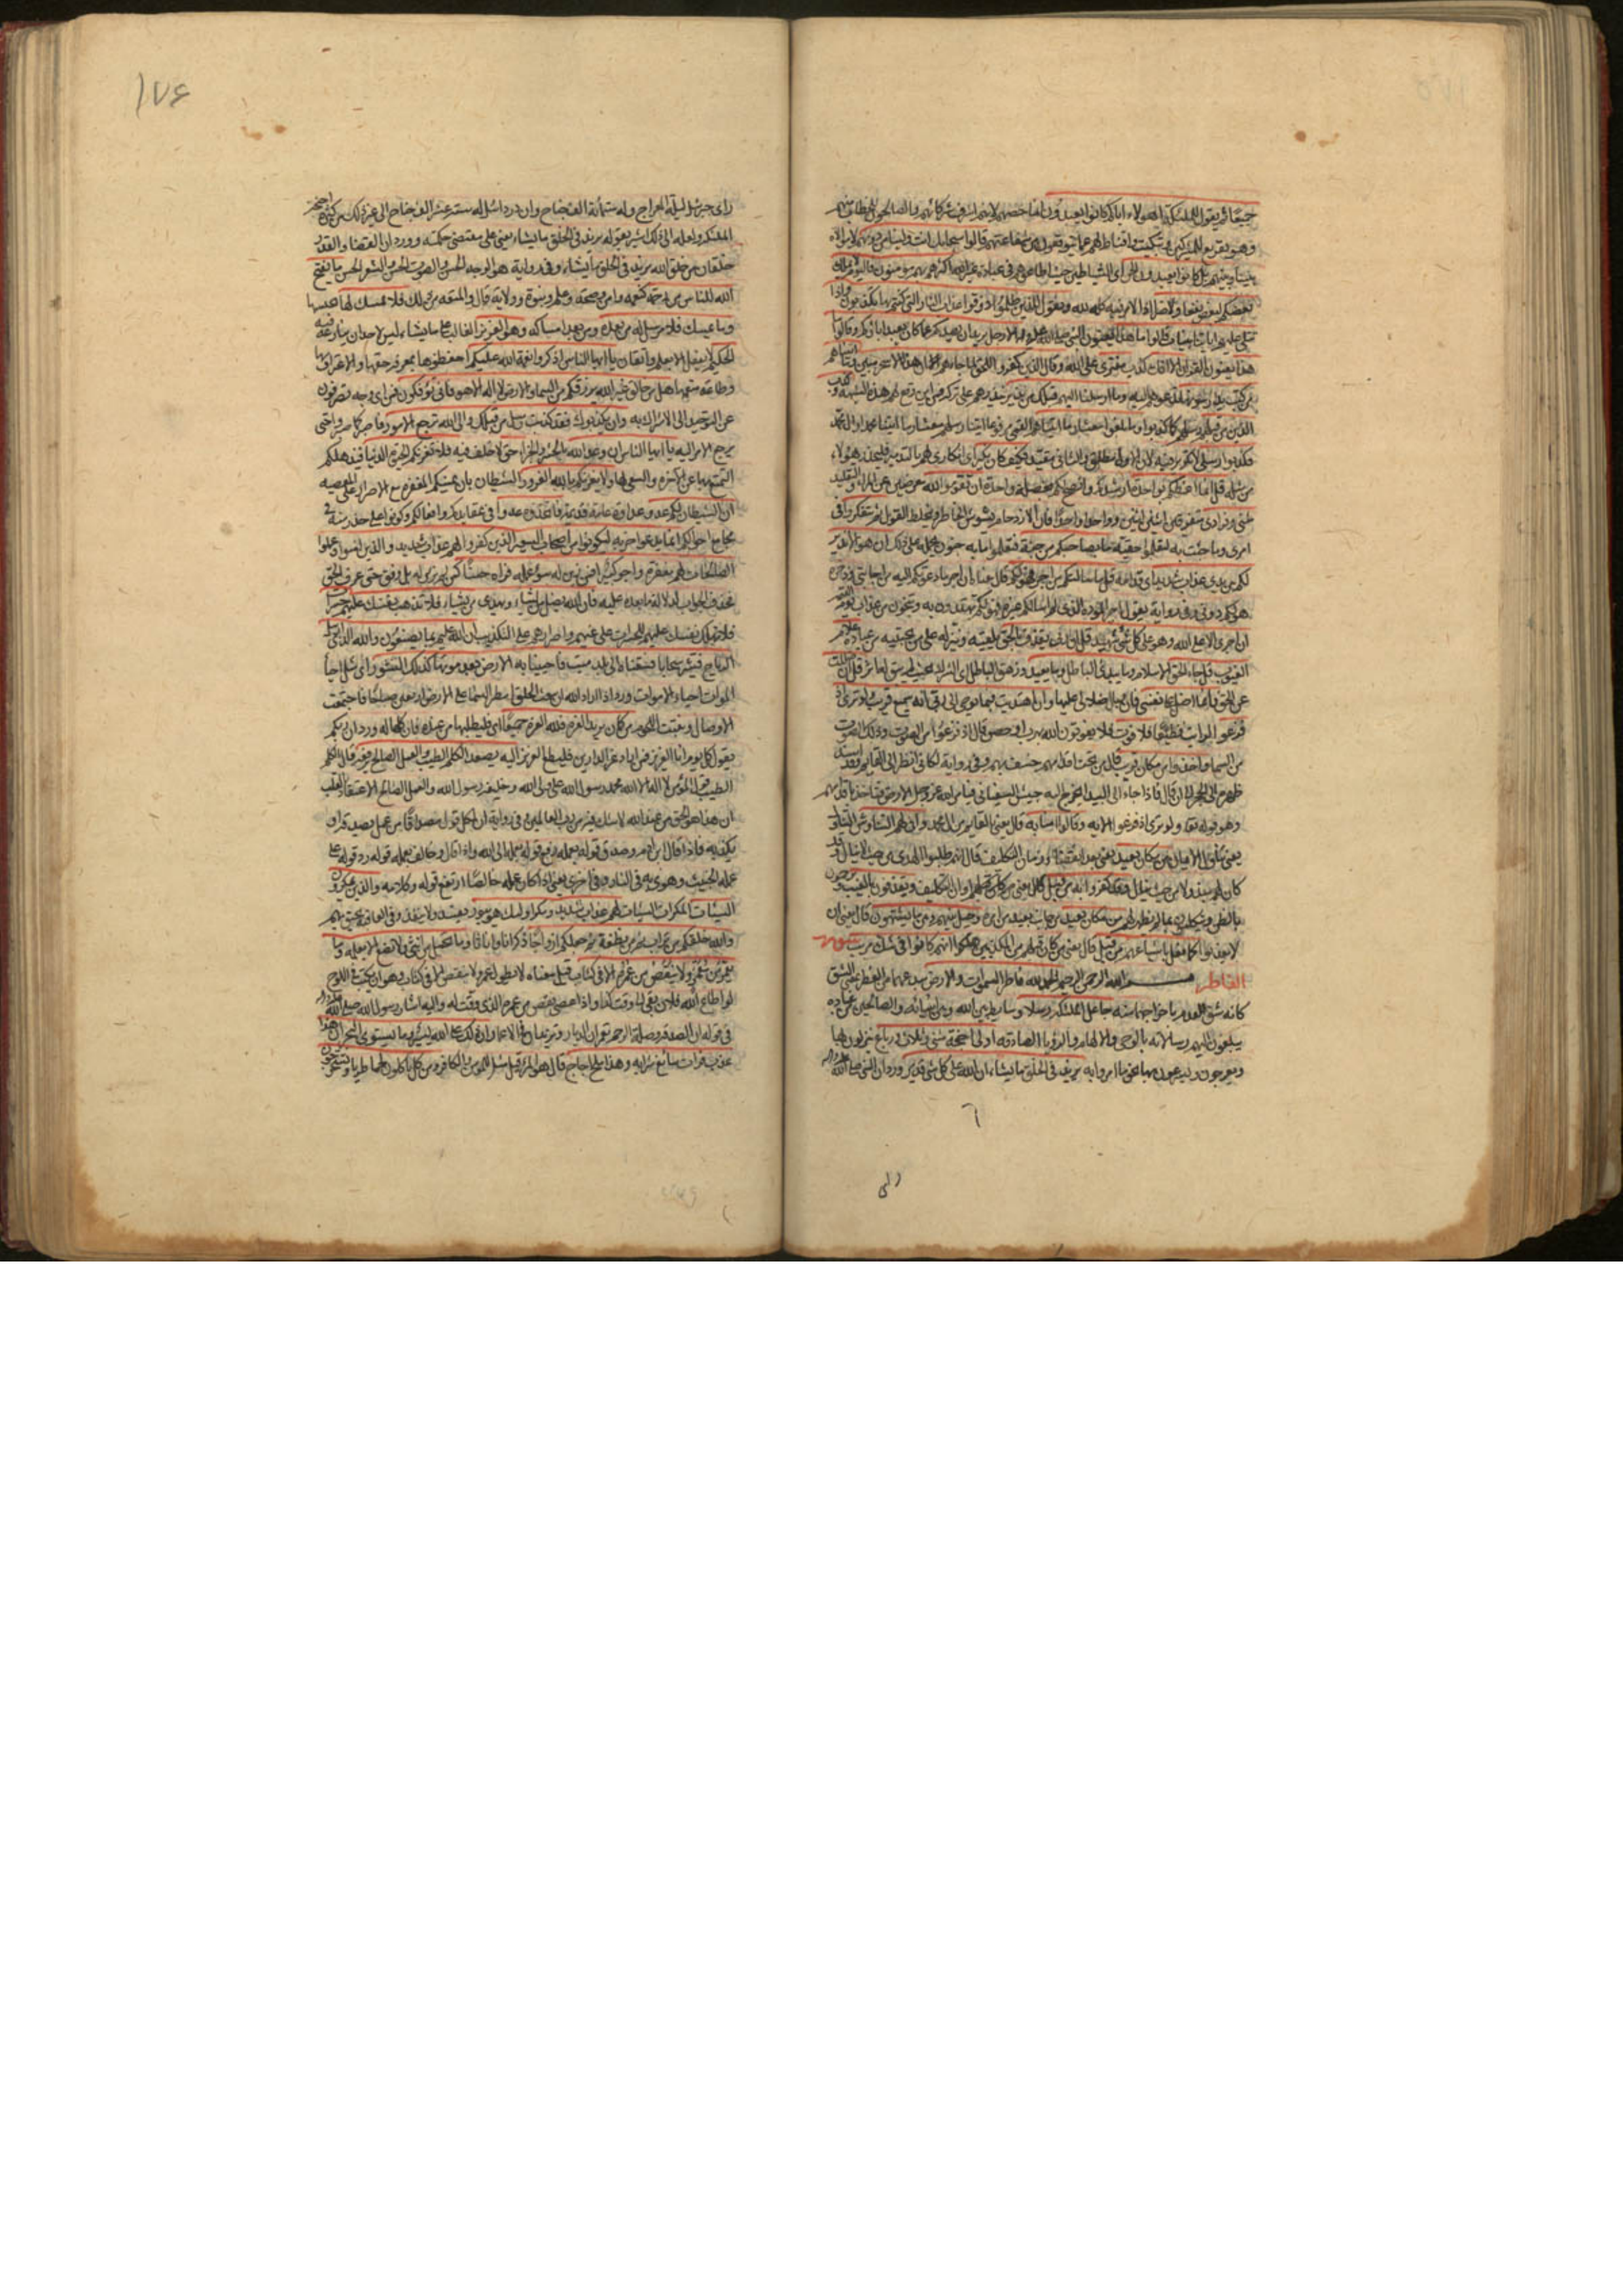 جميعا ثم يقول للملئكة اهؤلاء اياكم كانوا يعبدون
وهو تقريع للمشركين وتبكيت واقناط لهم عما يتوقعون من شفاعتهم قالوا سبحانك انت ولينا من دونهم لا موالاة
بيننا وبينهم بل كانوا يعبدون الجن اى الشياطين حيث اطاعوهم في عبادة غير الله اكثرهم بهم مؤمنون فاليوم لا يملك
بعضكم لبعض نفعا ولا ضرا اذ الامر فيه كله لله ونقول للذين ظلموا ذوقوا عذاب النار التي كنتم بها تكذبون واذا
تتلى عليهم اياتنا بينات قالوا ما هذا يعنون النبي صلى الله عليه واله الا رجل يريد ان يصدكم عما كان يعبد اباؤكم وقالوا ما
هذا يعنون القران الا افك كذب مفترى على الله وقال الذين كفروا للحق لما جاءهم ان هذا الا سحر مبين وما اتيناهم
من كتب يدرسونها وما ارسلنا اليهم قبلك من نذير
الذين من قبلهم وما بلغوا معشار ما اتيناهم
فكذبوا رسلي فكيف كان نكير اى انكارى لهم بالتدمير فليحذر هؤلاء
من مثله قل انما اعظكم بواحدة ارشدكم وانصح لكم بخصلة واحدة ان تقوموا لله معرضين عن المراء والتقليد
مثنى وفرادى متفرقين اثنين اثنين وواحدا واحدا فان الازدحام يشوش الخاطر ويخلط القول ثم تتفكروا في
امرى وما جئت به لتعلموا حقيته ما بصاحبكم من جنة فتعلموا ما به جنون يحمله على ذلك ان هو الا نذير
لكم بين يدى عذاب شديد اى قدامه قل ما سالتكم من اجر فهو لكم
هو لكم دونى وفي رواية يقول اجر المودة الذى لم اسالكم غيره فهو لكم تهتدون به وتنجون من عذاب يوم القيمة
ان اجرى الا على الله وهو على كل شئ شهيد قل ان ربى يقذف بالحق يلقيه وينزله على من يجتبيه من عباده علام
الغيوب قل جاء الحق الاسلام وما يبدئ الباطل وما يعيد وزهق الباطل اى الشرك بحيث لم يبق له اثر قل ان ضللت
عن الحق فانما اضل على نفسى فان وبال ضلالى عليها وان اهتديت فبما يوحى الى ربى انه سميع قريب ولو ترى اذ
فزعوا فلا فوت فلا يفوتون الله بهرب او حصن قال اذ فزعوا من الصوت وذلك الصوت
من السماء واخذوا من مكان قريب قال من تحت اقدامهم خسف بهم وفي رواية لكانى انظر الى القايم وقد اسند
ظهره الى الحجر الى ان قال فاذا جاء الى البيداء يخرج اليه جيش السفيانى فيامر الله عز وجل الارض فتاخذ باقدامهم
وهو قوله تعالى ولو ترى اذ فزعوا الاية وقالوا امنا به قال يعنى القايم من ال محمد وانى لهم التناوش التناول
يعنى تناول الايمان من مكان بعيد يعنى بعد انقضاء زمان التكليف قال انهم طلبوا الهدى من حيث لا ينال وقد
كان لهم مبذولا من حيث ينال وقد كفروا به من قبل قال يعنى اوان التكليف ويقذفون بالغيب ويرجمون
بالظن ويتكلمون بما لم يظهر لهم من مكان بعيد من جانب بعيد من امره وحيل بينهم وبين ما يشتهون قال يعنى ان
لا يعذبوا كما فعل باشياعهم من قبل قال يعنى من كان قبلهم من المكذبين هلكوا انهم كانوا في شك مريب سورة
الفاطر بسم الله الرحمن الرحيم الحمد لله فاطر السموات والارض مبدعهما من الفطر بمعنى الشق
كانه شق العدم باخراجهما منه جاعل الملئكة رسلا وسايط بين الله وبين انبيائه والصالحين من عباده
يبلغون اليهم رسالاته بالوحى والالهام والرؤيا الصادقة اولى اجنحة مثنى وثلاث ورباع ينزلون بها
ويعرجون ويسرعون بها نحو ما امروا به يزيد في الخلق ما يشاء ان الله على كل شئ قدير ورد ان النبي صلى الله عليه واله
راى
١٧٤
راى جبرئيل ليلة المعراج وله ستمائة الف جناح وان دردائيل له ستة عشر الف جناح الى غير ذلك من كثرة اجنحة
الملئكة ولعله الى ذلك اشير بقوله يزيد في الخلق ما يشاء يعنى على مقتضى حكمته وورد ان القضاء والقدر
خلقان من خلق الله يزيد في الخلق ما يشاء وفي رواية هو الوجه الحسن والصوت الحسن والشعر الحسن ما يفتح
الله للناس من رحمة كنعمة وامن وصحة وعلم ونبوة وولاية قال والمتعة من ذلك فلا ممسك لها يحبسها
وما يمسك فلا مرسل له من بعده من بعد امساكه وهو العزيز الغالب على ما يشاء ليس لاحد ان ينازعه فيه
الحكيم لا يفعل الا بعلم واتقان يا ايها الناس اذكروا نعمة الله عليكم احفظوها بمعرفة حقها والاعتراف بها
وطاعة منعمها هل من خالق غير الله يرزقكم من السماء والارض لا اله الا هو فانى تؤفكون فمن اى وجه تصرفون
عن التوحيد الى الاشراك به وان يكذبوك فقد كذبت رسل من قبلك والى الله ترجع الامور
يا ايها الناس ان وعد الله بالحشر والجزاء حق لا خلف فيه فلا تغرنكم الحيوة الدنيا فيذهلكم
التمتع بها عن الاخرة والسعى لها ولا يغرنكم بالله الغرور الشيطان بان يمنيكم المغفرة مع الاصرار على المعصية
ان الشيطان لكم عدو عداوة عامة قديمة فاتخذوه عدوا في عقايدكم وافعالكم وكونوا على حذر منه في
مجامع احوالكم انما يدعوا حزبه ليكونوا من اصحاب السعير الذين كفروا لهم عذاب شديد والذين امنوا وعملوا
الصالحات لهم مغفرة واجر كبير افمن زين له سوء عمله فراه حسنا كمن لم يزين له بل وفق حتى عرف الحق
فحذف الجواب لدلالة ما بعده عليه فان الله يضل من يشاء ويهدى من يشاء فلا تذهب نفسك عليهم حسرات
فلا تهلك نفسك عليهم للحسرات على غيهم واصرارهم على التكذيب ان الله عليم بما يصنعون والله الذى ارسل
الرياح فتثير سحابا فسقناه الى بلد ميت فاحيينا به الارض بعد موتها كذلك النشور اى مثل احياء
الموات احياء الاموات ورد اذا اراد الله ان يبعث الخلق امطر السماء على الارض اربعين صباحا فاجتمعت
الاوصال ونبتت اللحوم من كان يريد العزة فلله العزة جميعا اى فليطلبها من عنده فان كلها له ورد ان ربكم
يقول كل يوم انا العزيز فمن اراد عز الدارين فليطع العزيز اليه يصعد الكلم الطيب والعمل الصالح يرفعه قال الكلم
الطيب قول المؤمن لا اله الا الله محمد رسول الله على ولى الله وخليفة رسول الله والعمل الصالح الاعتقاد بالقلب
ان هذا هو الحق من عند الله لا شك فيه من رب العالمين وفي رواية ان لكل قول مصداقا من عمل يصدقه او
يكذبه فاذا قال ابن ادم وصدق قوله بعمله رفع قوله بعمله الى الله واذا قال وخالف عمله قوله رد قوله على
عمله الخبيث وهوى به في النار وفي اخرى يعنى اذا كان عمله خالصا ارتفع قوله وكلامه والذين يمكرون
السيئات المكرات السيئات لهم عذاب شديد ومكر اولئك هو يبور يفسد ولا ينفذ
والله خلقكم من تراب ثم من نطفة ثم جعلكم ازواجا ذكرانا واناثا وما تحمل من انثى ولا تضع الا بعلمه وما
يعمر من معمر ولا ينقص من عمره الا في كتاب قيل معناه لا يطول عمر ولا ينقص الا في كتاب وهو ان يكتب في اللوح
لو اطاع الله فلان بقى الى وقت كذا واذا عصى نقص من عمره الذى وقت له واليه اشار رسول الله صلى الله عليه واله
في قوله ان الصدقة وصلة الرحم تعمران الديار وتزيدان في الاعمار ان ذلك على الله يسير وما يستوى البحران هذا
عذب فرات سائغ شرابه وهذا ملح اجاج قال هو المر قيل مثل للمؤمن والكافر ومن كل تاكلون لحما طريا وتستخرجون